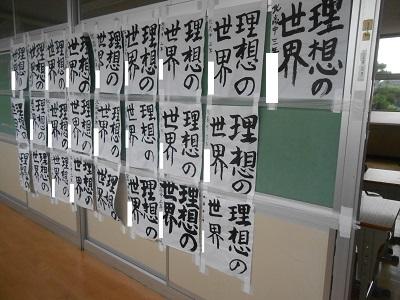 理想の
世界
理想の
世界
理想の
世界
理想の
世界
理想の
世界
理想の
世界
理想の
世界
理想の
世界
理想の
世界
理想の
世界
理想の
世界
理想の
世界
理想の
世界
理想の
世界
理想の
世界
理想の
世界
理想の
世界
理想の
世界
理想の
世界
理想の
世界
理想の
世界
理想の
世界
理想の
世界
理想の
世界
理想の
世界